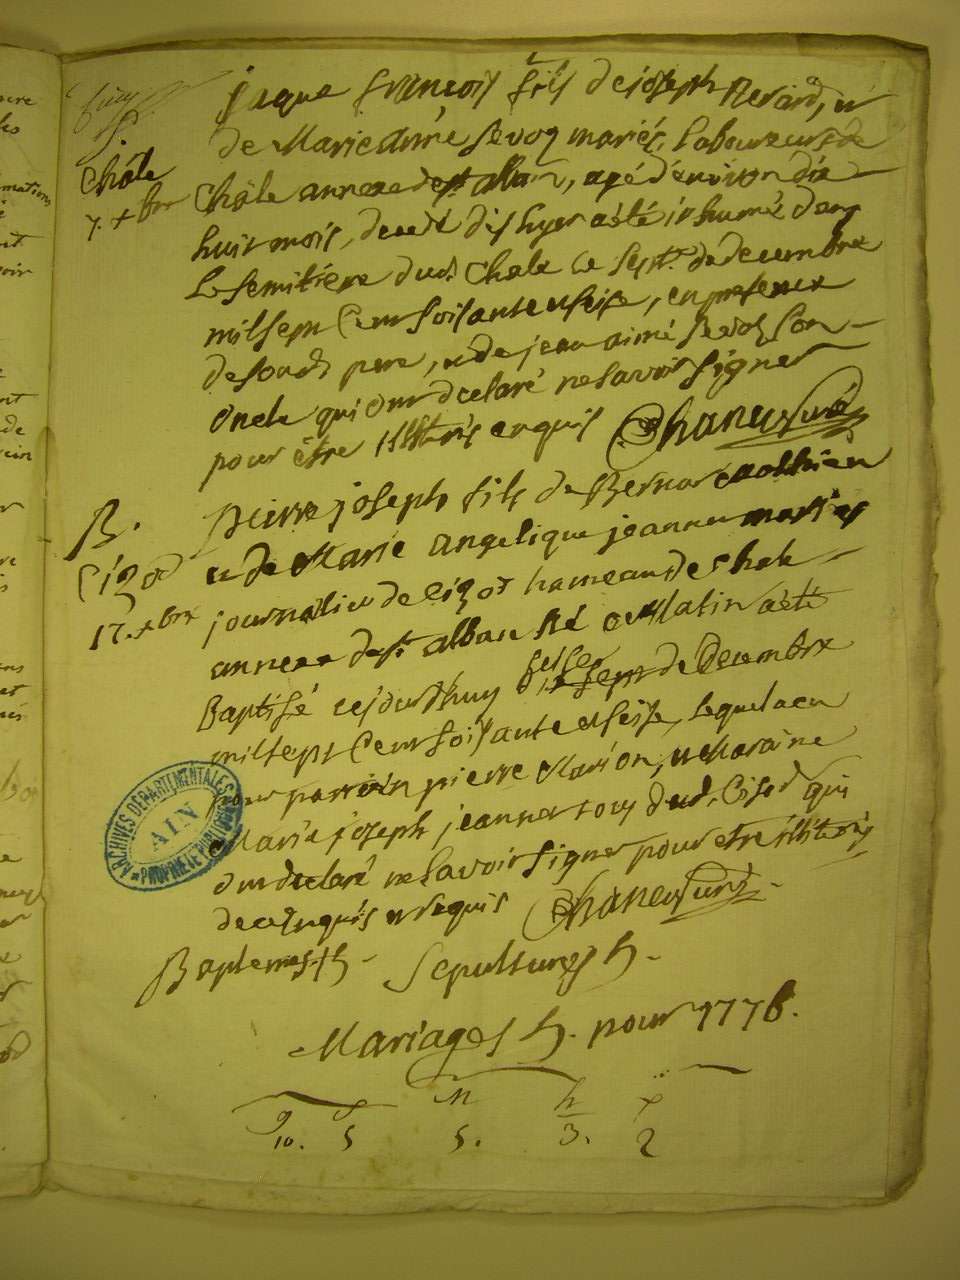 jaque françois fils de joseph Revard, et
de Marie Anne Sevoz mariés, laboureurs de
Châle
7. xbre
Châle annexe de st alban, agé d'environ dix
huit mois, decedé dishyer a été inhumé dans
Le semitiere dud. Chale ce sept. de decembre
mil sept Cent soisante et seise, en presence
de son d. pere, et de jean aimé Sevoz son
oncle qui ont declaré ne savoir signer
pour être illiterés enquis Chaneu Curé
B.
Cizod
17. xbre
pierre joseph fils de Bernar Mathieu
et de Marie angelique jeannet mariés
journalier de Cizod hameau de Chale
annexe de st. alban né le Matin a été
Baptisé cejourdhuy seise de Decembre
mil sept Cent soisante et seise, lequel a eu
pour parrein pierre Marion, et Maraine
Marie joseph jeannet tous dud. Cisod qui
ont declaré ne savoir signer pour etre illiterés
de ce enquis et requis Chaneu Curé
Baptemes
Sepultures
Mariages pour 1776.
10. 5 5. 3. 2
ARCHIVES DÉPARTEMENTALES
AIN
PROPRIÉTÉ PUBLIQUE